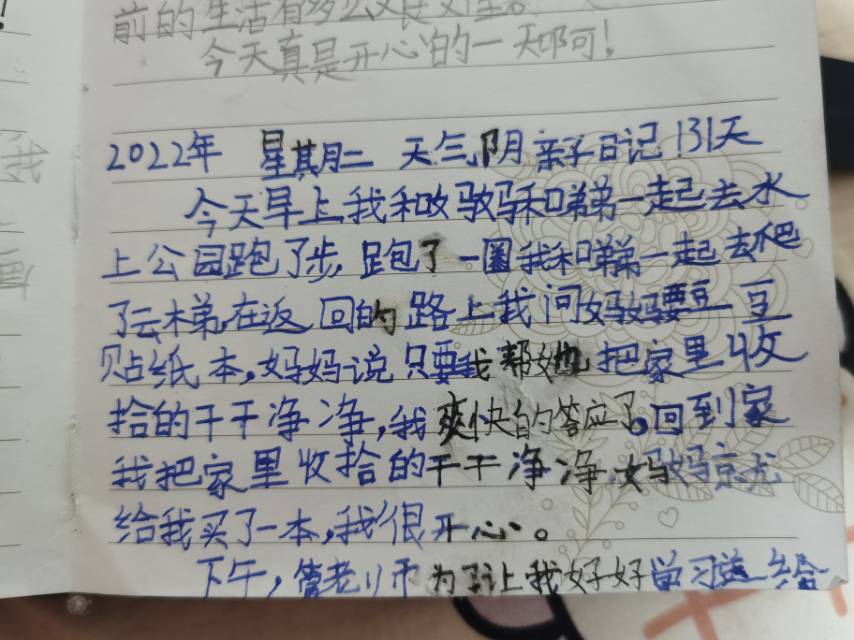 前的生活有多么
今天真是开心的一天啊!
2022年 星期二 天气阴 亲子日记131天
今天早上我和妈妈和弟弟一起去水
上公园跑了步,跑了一圈我和弟弟一起去爬
了云梯,在返回的路上我问妈妈要豆豆
贴纸本,妈妈说只要我帮她把家里收
拾的干干净净,我爽快的答应了。回到家
我把家里收拾的干干净净,妈妈京尤
给我买了一本,我很开心。
下午,管老师为了让我好好学习送给